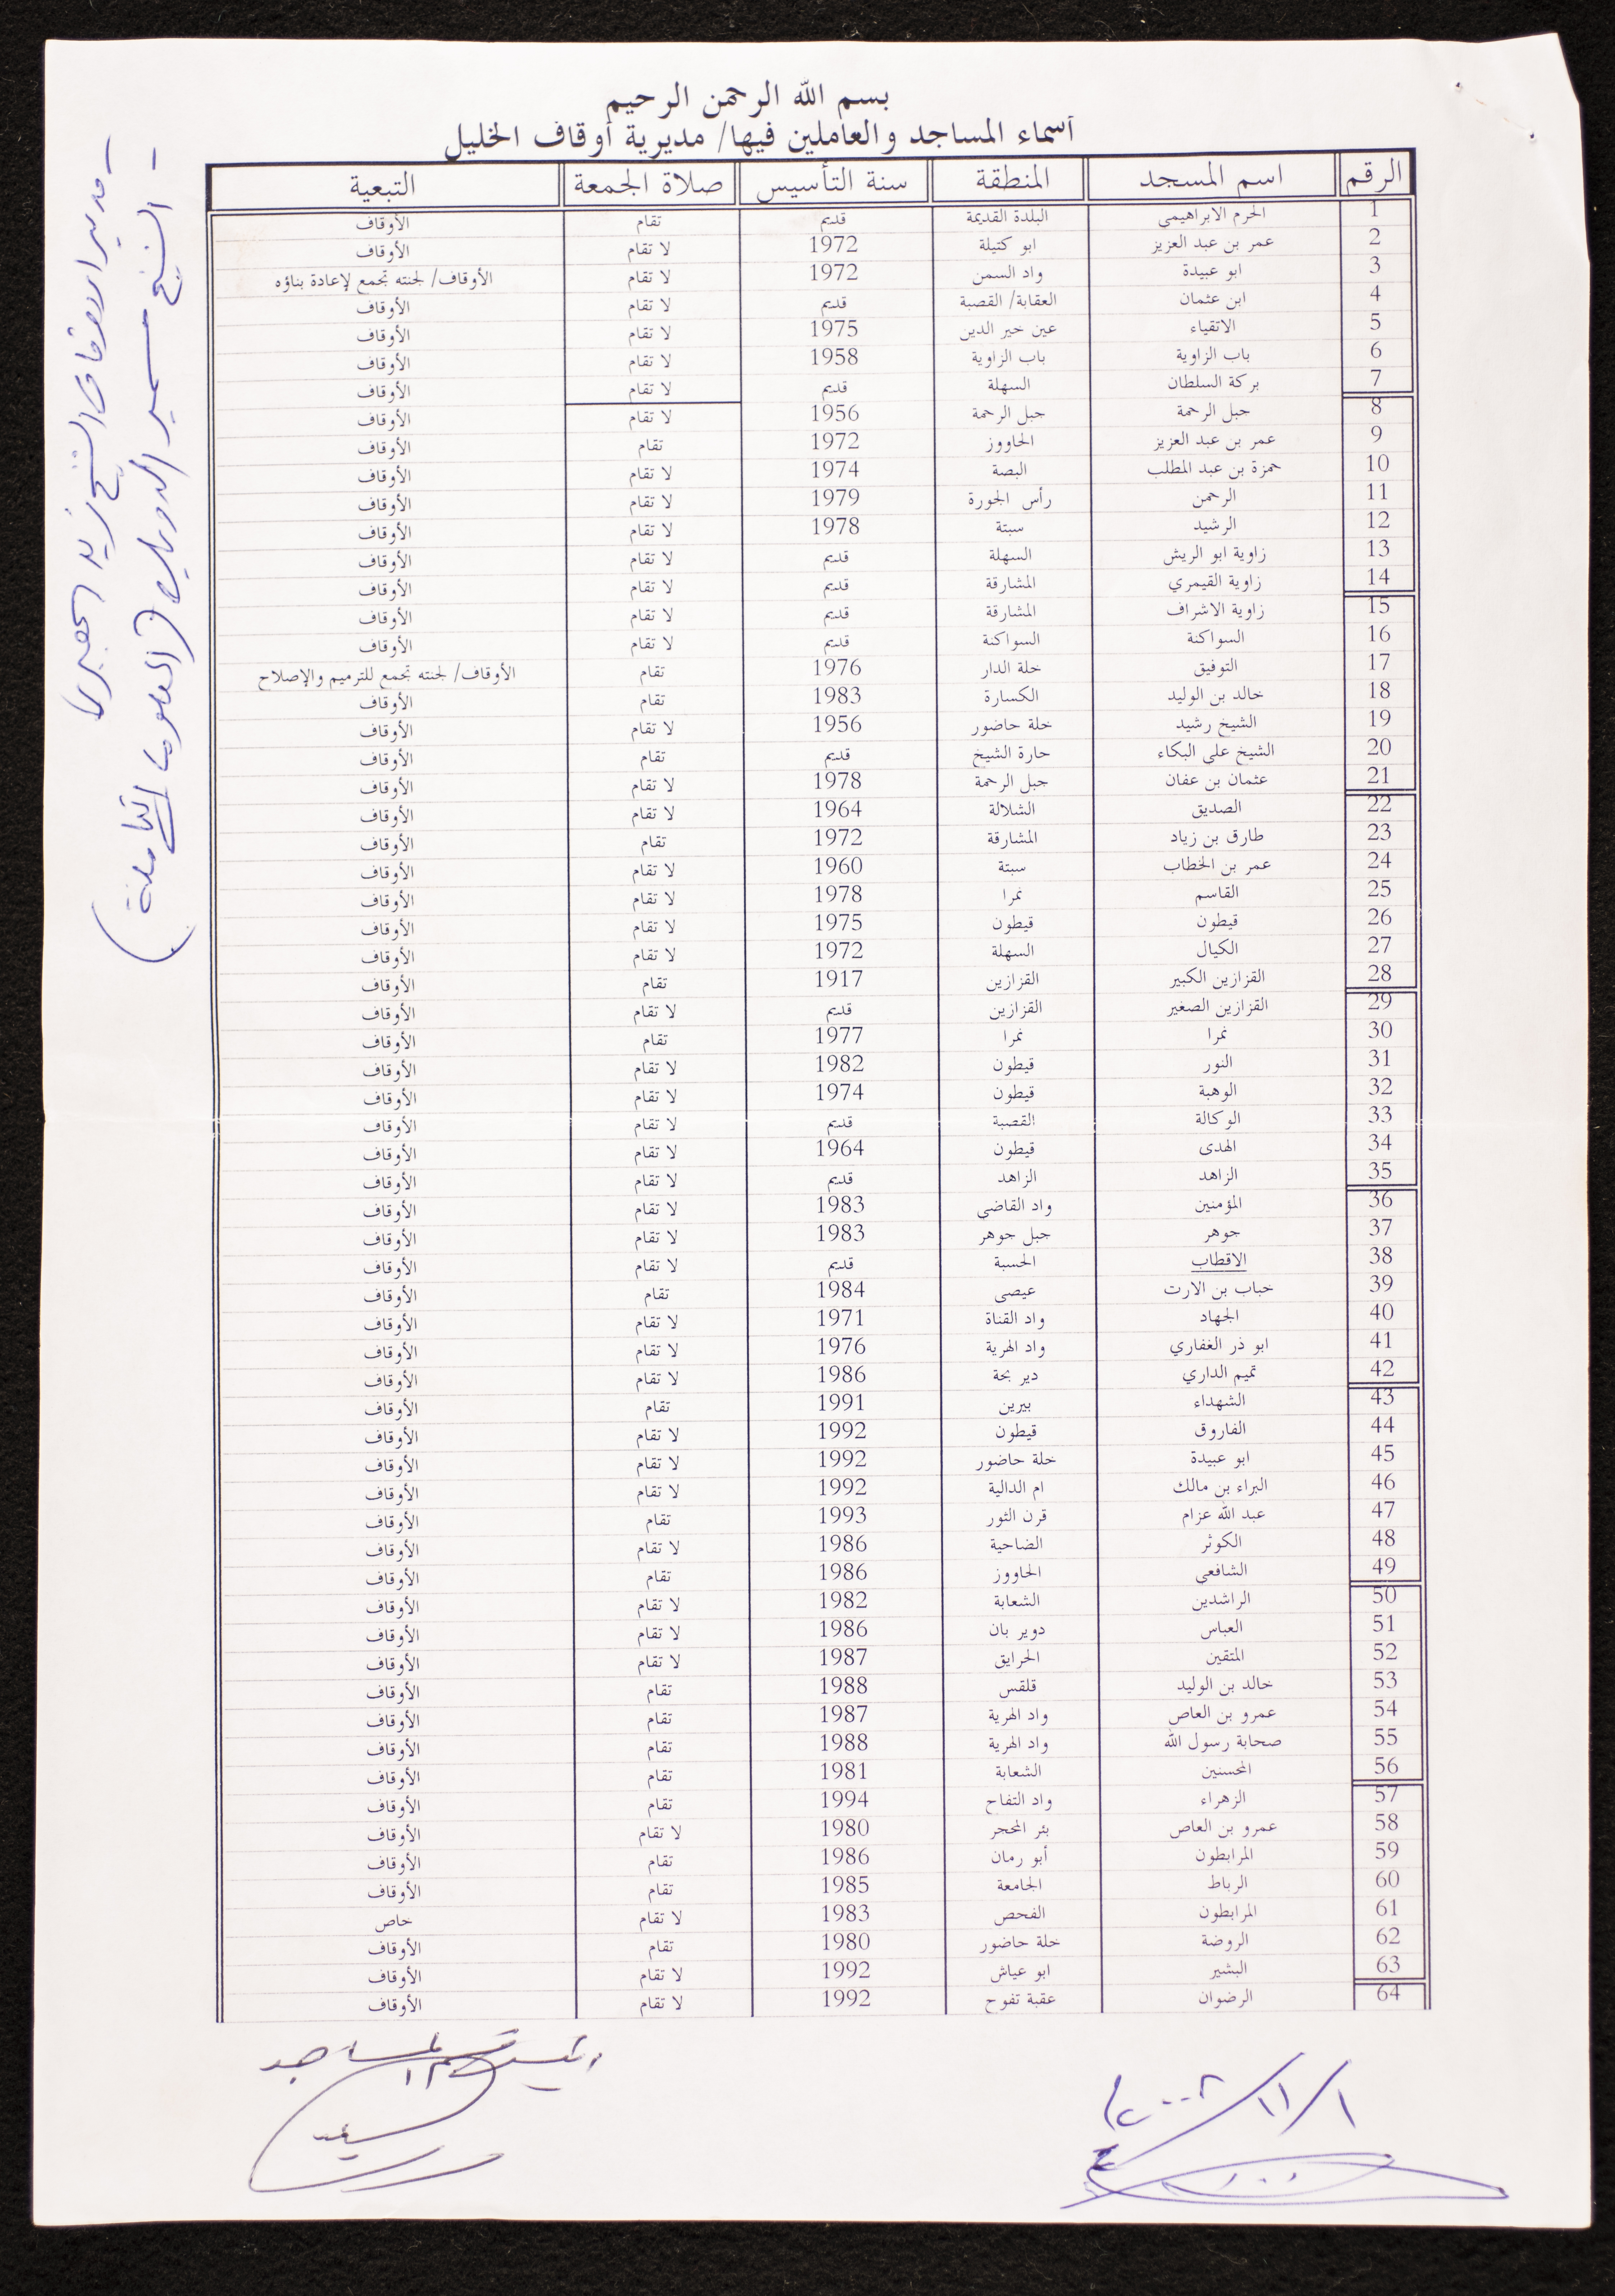 بسم الله الرحمن الرحيم
أسماء المساجد والعاملين فيها/ مديرية أوقاف الخليل
الرقم اسم المسجد المنطقة سنة التأسيس صلاة الجمعة التبعية
1 الحرم الابراهيمي البلدة القديمة قديم تقام الأوقاف
2 عمر بن عبد العزيز ابو كتيلة 1972 لا تقام الأوقاف
3 ابو عبيدة واد السمن 1972 لا تقام الأوقاف/ لجنته تجمع لإعادة بناؤه
4 ابن عثمان العقابة/ القصبة قديم لا تقام الأوقاف
5 الاتقياء عين خير الدين 1975 لا تقام الأوقاف
6 باب الزاوية باب الزاوية 1958 لا تقام الأوقاف
7 بركة السلطان السهلة قديم لا تقام الأوقاف
8 جبل الرحمة جبل الرحمة 1956 لا تقام الأوقاف
9 عمر بن عبد العزيز الحاووز 1972 تقام الأوقاف
10 حمزة بن عبد المطلب البصة 1974 لا تقام الأوقاف
11 الرحمن رأس الجورة 1979 لا تقام الأوقاف
12 الرشيد سبتة 1978 لا تقام الأوقاف
13 زاوية ابو الريش السهلة قديم لا تقام الأوقاف
14 زاوية القيمري المشارقة قديم لا تقام الأوقاف
15 زاوية الاشراف المشارقة قديم لا تقام الأوقاف
16 السواكنة السواكنة قديم لا تقام الأوقاف
17 التوفيق خلة الدار 1976 تقام الأوقاف/ لجنته تجمع للترميم والإصلاح
18 خالد بن الوليد الكسارة 1983 تقام الأوقاف
19 الشيخ رشيد خلة حاضور 1956 لا تقام الأوقاف
20 الشيخ علي البكاء حارة الشيخ قديم تقام الأوقاف
21 عثمان بن عفان جبل الرحمة 1978 لا تقام الأوقاف
22 الصديق الشلالة 1964 لا تقام الأوقاف
23 طارق بن زياد المشارقة 1972 تقام الأوقاف
24 عمر بن الخطاب سبتة 1960 لا تقام الأوقاف
25 القاسم نمرا 1978 لا تقام الأوقاف
26 قيطون قيطون 1975 لا تقام الأوقاف
27 الكيال السهلة 1972 لا تقام الأوقاف
28 القزازين الكبير القزازين 1917 تقام الأوقاف
29 القزازين الصغير القزازين قديم لا تقام الأوقاف
30 نمرا نمرا 1977 تقام الأوقاف
31 النور قيطون 1982 لا تقام الأوقاف
32 الوهبة قيطون 1974 لا تقام الأوقاف
33 الوكالة القصبة قديم لا تقام الأوقاف
34 الهدى قيطون 1964 لا تقام الأوقاف
35 الزاهد الزاهد قديم لا تقام الأوقاف
36 المؤمنين واد القاضي 1983 لا تقام الأوقاف
37 جوهر جبل جوهر 1983 لا تقام الأوقاف
38 الاقطاب الحسبة قديم لا تقام الأوقاف
39 خباب بن الارت عيصى 1984 تقام الأوقاف
40 الجهاد واد القناة 1971 لا تقام الأوقاف
41 ابو ذر الغفاري واد الهرية 1976 لا تقام الأوقاف
42 تميم الداري دير بحة 1986 لا تقام الأوقاف
43 الشهداء بيرين 1991 تقام الأوقاف
44 الفاروق قيطون 1992 لا تقام الأوقاف
45 ابو عبيدة خلة حاضور 1992 لا تقام الأوقاف
46 البراء بن مالك ام الدالية 1992 لا تقام الأوقاف
47 عبد الله عزام قرن الثور 1993 تقام الأوقاف
48 الكوثر الضاحية 1986 لا تقام الأوقاف
49 الشافعي الحاووز 1986 تقام الأوقاف
50 الراشدين الشعابة 1982 لا تقام الأوقاف
51 العباس دوير بان 1986 لا تقام الأوقاف
52 المتقين الحرايق 1987 لا تقام الأوقاف
53 خالد بن الوليد قلقس 1988 تقام الأوقاف
54 عمرو بن العاص واد الهرية 1987 تقام الأوقاف
55 صحابة رسول الله واد الهرية 1988 تقام الأوقاف
56 المحسنين الشعابة 1981 تقام الأوقاف
57 الزهراء واد التفاح 1994 تقام الأوقاف
58 عمرو بن العاص بئر المحجر 1980 لا تقام الأوقاف
59 المرابطون أبو رمان 1986 تقام الأوقاف
60 الرباط الجامعة 1985 تقام الأوقاف
61 المرابطون الفحص 1983 لا تقام خاص
62 الروضة خلة حاضور 1980 تقام الأوقاف
63 البشير ابو عياش 1992 لا تقام الأوقاف
64 الرضوان عقبة تفوح 1992 لا تقام الأوقاف
- مدير الاوقاف الشيخ زيد الجعبري
- الشيخ سمير الدويك (المعلومات الكاملة)
رئيس قسم المساجد
١/١١/٢٠٠٨